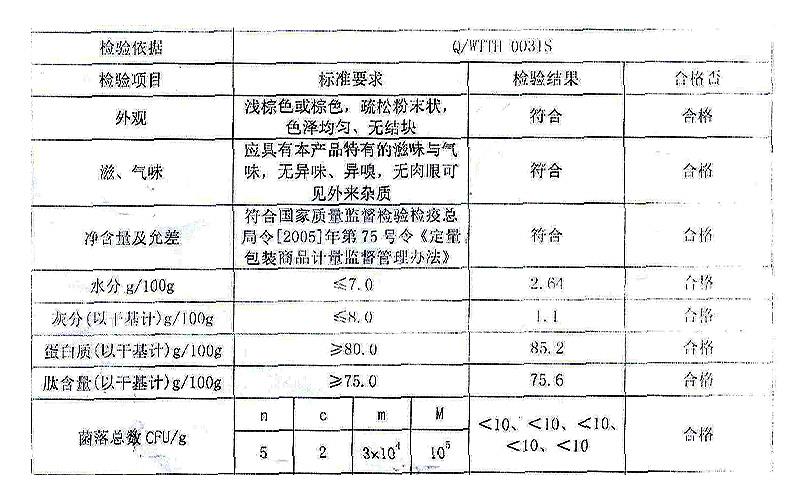 检验依据 Q/WTTH 0031S
检验项目 标准要求 检验结果 合格否
外观 浅棕色或棕色，疏松粉末状， 符合 合格
色泽均匀、无结块
滋、气味 应具有本产品特有的滋味与气 符合 合格
味，无异味、异嗅，无肉眼可
见外来杂质
净含量及允差 符合国家质量监督检验检疫总 符合 合格
局令[2005]年第75号令《定量
包装商品计量监督管理办法》
水分g/100g ≤7.0 2.64 合格
灰分(以干基计)g/100g ≤8.0 1.1 合格
蛋白质(以干基计)g/100g ≥80.0 85.2 合格
肽含量(以干基计)g/100g ≥75.0 75.6 合格
菌落总数CFU/g n c m M <10、<10、<10、 合格
5 2 3×10⁴ 10⁵ <10、<10